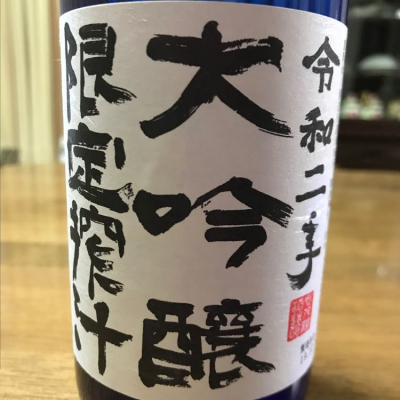 令和二年
大吟醸
限定搾汁